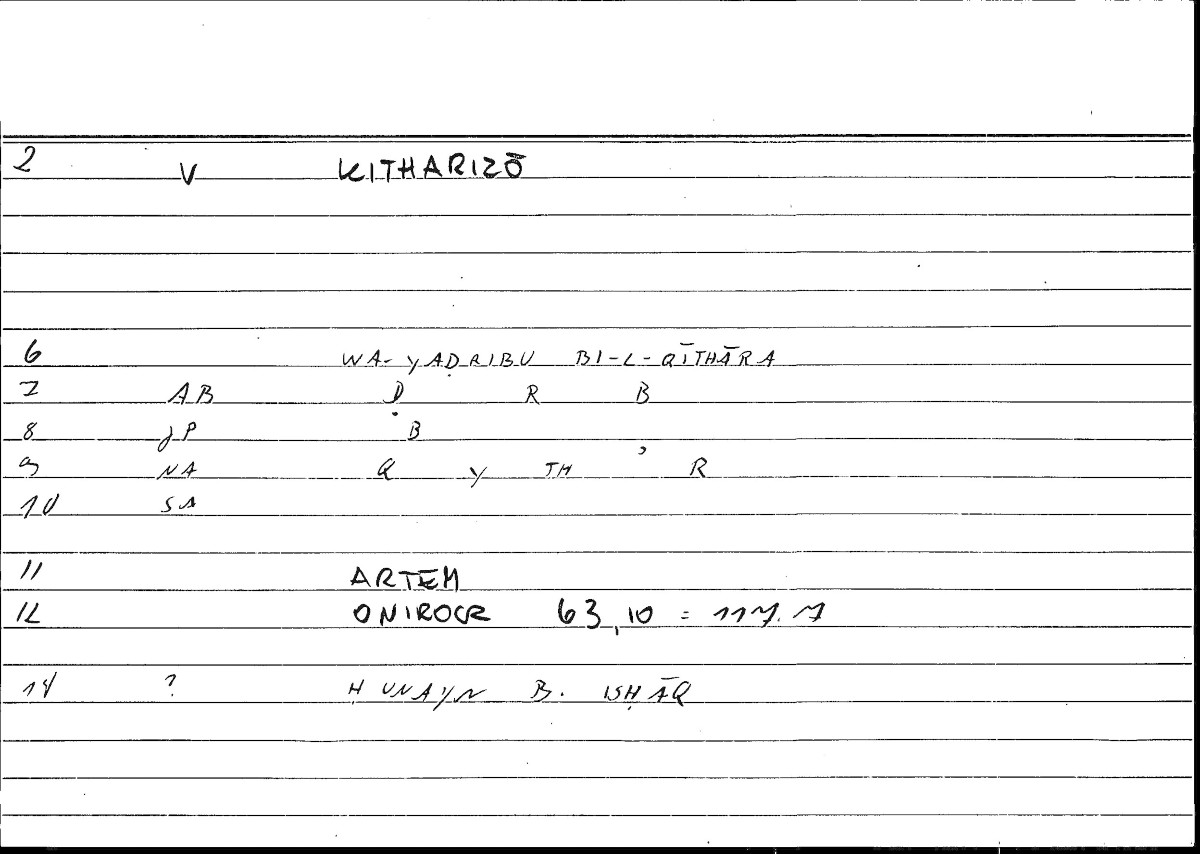 2 V KITHARIZŌ
6 WA-YAḌRIBU BI-L-QĪTHĀRA
7 AB Ḍ R B
8 JP B
9 NA Q Y TH ' R
10 SA
11 ARTEM
12 ONIROCR 63,10 = 117.7
14 ? ḤUNAYN B. ISḤĀQ